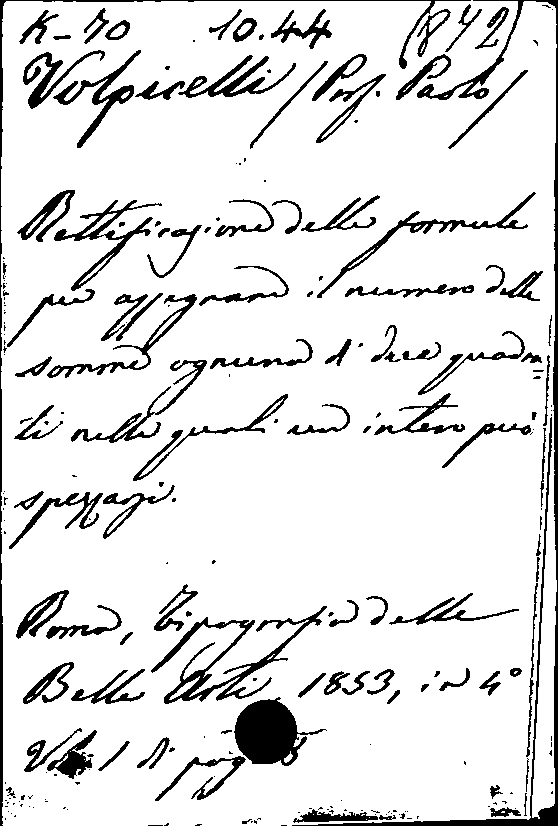 K-70 10.44 (872)
Volpicelli / Prof. Paolo /
Rettificazione delle formule
per assegnare il numero delle
somme ognuna di due quadra=
ti nelle quali un intero può
spezzarsi.
Roma, Tipografia delle
Belle Arti, 1853, in 4°
Vol. 1 di pag